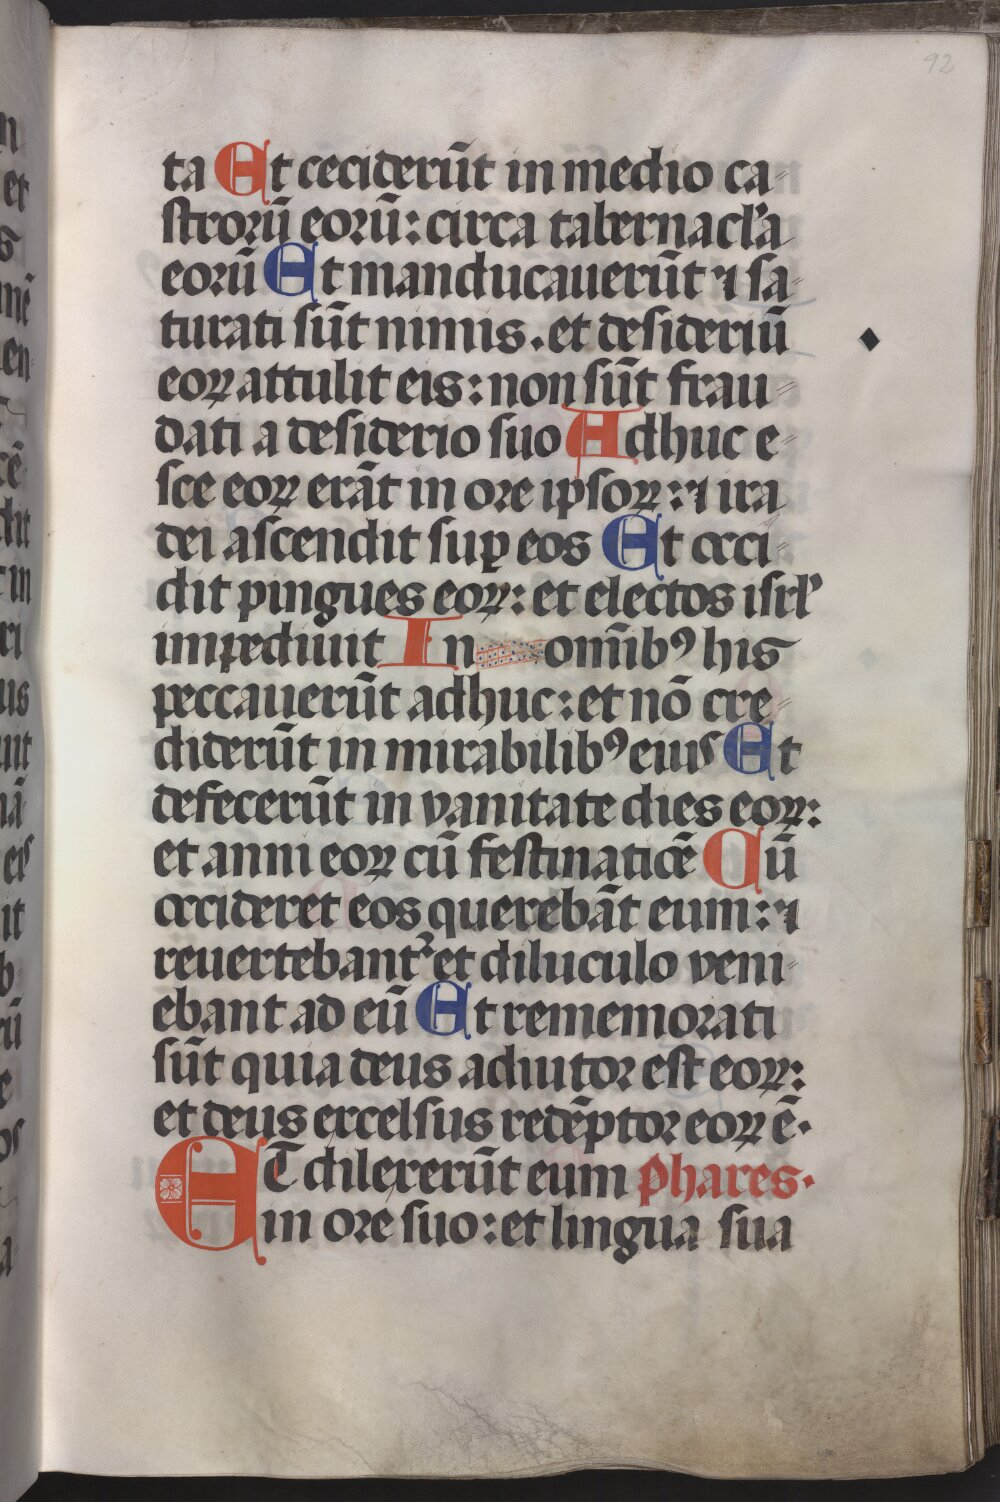 92
ta Et ceciderūt in medio ca⸗
ſtrorū eorū: circa tabernacl'a
eorū Et manducauerūt ⁊ ſa⸗
turati ſūt nimis. et deſideriū
eoꝝ attulit eis: non ſūt frau⸗
dati a deſiderio ſuo Adhuc e⸗
ſce eoꝝ erāt in ore ipſoꝝ: ⁊ ira
dei aſcendit ſuꝑ eos Et occi⸗
dit pingues eoꝝ: et electos iſrl'
impediuit In omībꝰ his
peccauerūt adhuc: et nō cre⸗
diderūt in mirabilibꝰ eiuſ Et
defecerūt in vanitate dies eoꝝ:
et anni eoꝝ cū feſtinatiōe Cū
occideret eos querebāt eum: ⁊
reuertebant᷑ et diluculo veni⸗
ebant ad eū Et rememorati
ſūt quia deus adiutor eſt eoꝝ:
et deus excelſus redēptor eoꝝ ē.
ET dilexerūt eum Phares.
in ore ſuo: et lingua ſua